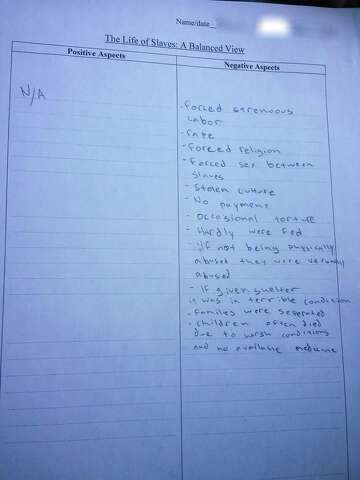 Name/date
The Life of Slaves: A Balanced View
Positive Aspects
Negative Aspects
N/A
- Forced strenuous
Labor
- rape
- Forced religion
- Forced sex between
slaves
- Stolen culture
- No payment
- Occasional torture
- Hardly were fed
- If not being physically
abused they were verbally
abused
- If given shelter
it was in terrible condition
- Families were seperated
- children often died
due to harsh conditions
and no available medicine